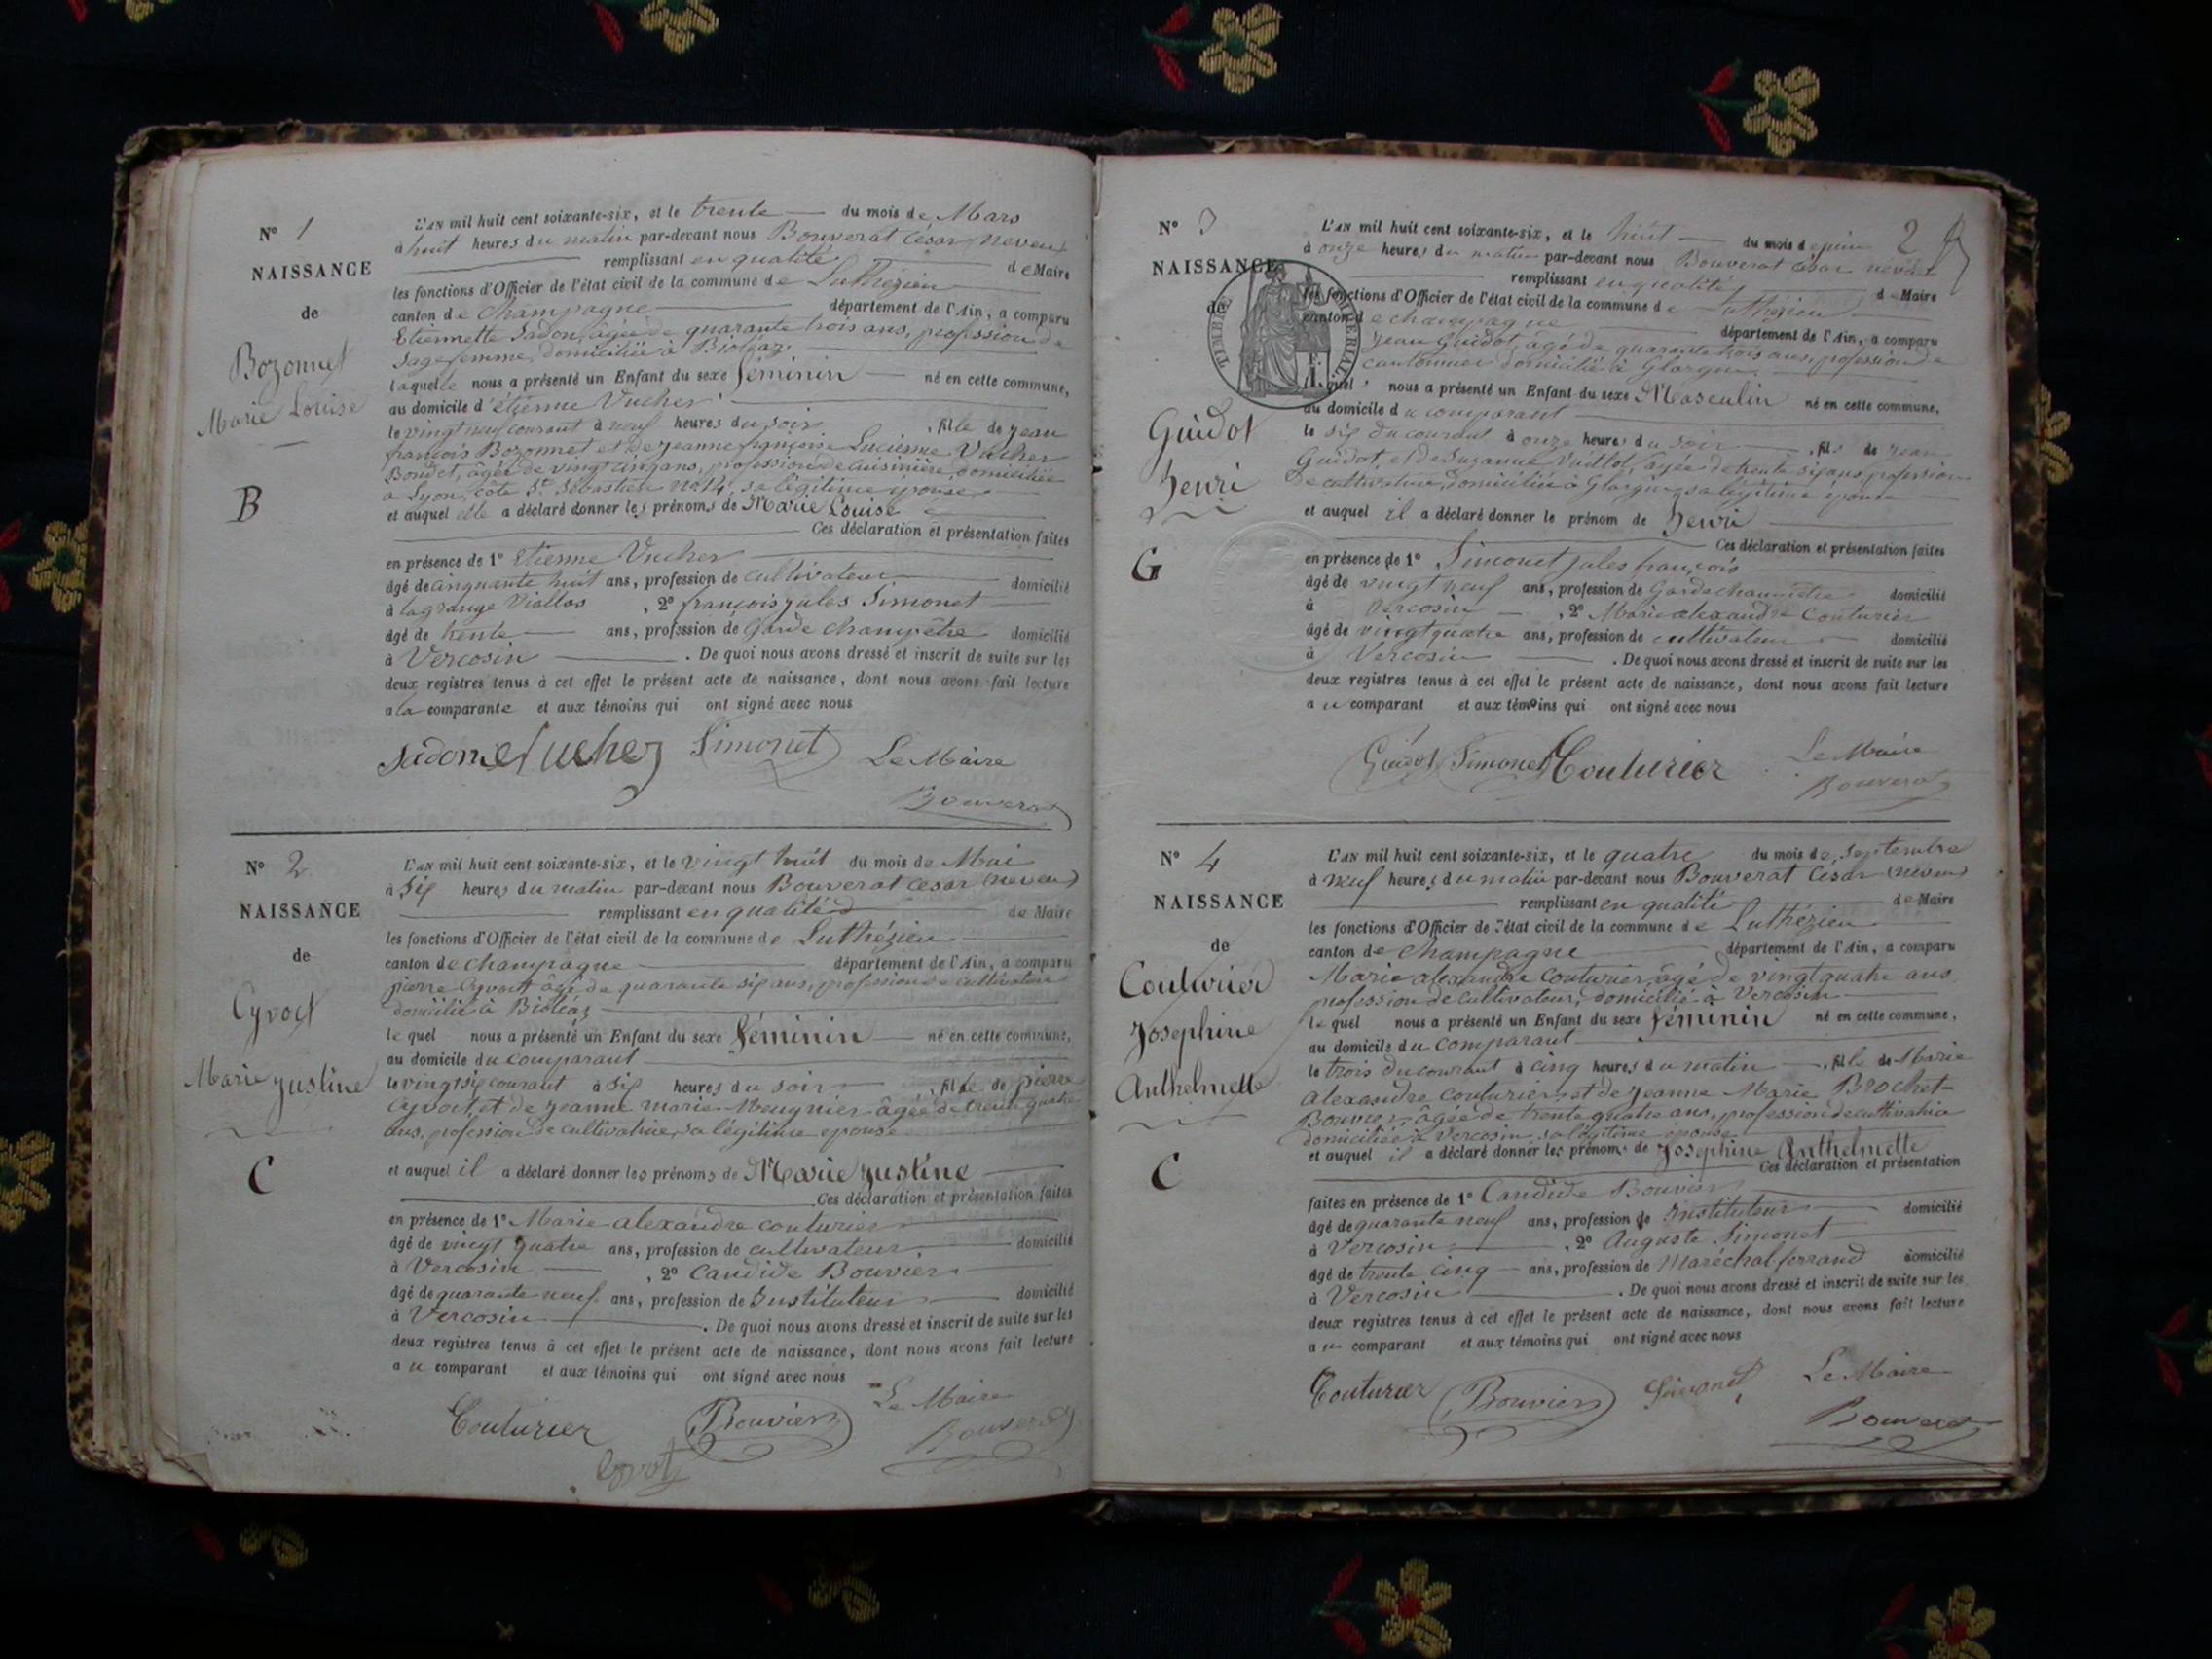 N° 1
NAISSANCE
de
Bozonnet
Marie Louise
B
L'AN mil huit cent soixante-six, et le trente du mois de Mars
à huit heures du matin par-devant nous Bouverat César (neveu)
remplissant en qualité de Maire
les fonctions d'Officier de l'état civil de la commune de Luthézieu
canton de Champagne département de l'Ain, a comparu
Etiennette Jadon, âgée de quarante trois ans, profession de
Sage femme, domiciliée à Bioléaz.
laquelle nous a présenté un Enfant du sexe féminin né en cette commune,
au domicile d'étienne Vucher
le vingt neuf courant à neuf heures du soir, fille de Jean
françois Bozonnet et de Jeanne françoise Lucienne Vucher
Bondet, âgée de vingt cinq ans, profession de cuisinière, domiciliée
à Lyon, côte St Sébastien no 14, sa légitime épouse
et auquel elle a déclaré donner les prénoms de Marie Louise
Ces déclaration et présentation faites
en présence de 1° Etienne Vucher
âgé de cinquante huit ans, profession de cultivateur domicilié
à lagrange Viallas, 2° françois jules Simonet
âgé de trente ans, profession de Garde champêtre domicilié
à Vercosin. De quoi nous avons dressé et inscrit de suite sur les
deux registres tenus à cet effet le présent acte de naissance, dont nous avons fait lecture
a la comparante et aux témoins qui ont signé avec nous
Jadon E Vucher Simonet Le Maire
Bouverat
N° 2
NAISSANCE
de
Cyvoct
Marie Justine
C
L'AN mil huit cent soixante-six, et le vingt huit du mois de Mai
à six heures du matin par-devant nous Bouverat César (neveu)
remplissant en qualité de Maire
les fonctions d'Officier de l'état civil de la commune de Luthézieu
canton de Champagne département de l'Ain, a comparu
pierre Cyvoct âgé de quarante six ans, profession de cultivateur
domicilié à Bioléaz
le quel nous a présenté un Enfant du sexe féminin né en cette commune,
au domicile du comparant
le vingt six courant à six heures du soir, fille de pierre
Cyvoct, et de Jeanne marie Meugnier âgée de trente quatre
ans, profession de cultivatrice, sa légitime épouse
et auquel il a déclaré donner les prénoms de Marie Justine
Ces déclaration et présentation faites
en présence de 1° Marie alexandre couturier
âgé de vingt quatre ans, profession de cultivateur domicilié
à Vercosin, 2° Candide Bouvier
âgé de quarante neuf ans, profession de Instituteur domicilié
à Vercosin. De quoi nous avons dressé et inscrit de suite sur les
deux registres tenus à cet effet le présent acte de naissance, dont nous avons fait lecture
a u comparant et aux témoins qui ont signé avec nous
Couturier Bouvier Le Maire
Cyvoct Bouverat
2
N° 3
NAISSANCE
de
TIMBRE IMPERIAL
Guidot
Henri
G
L'AN mil huit cent soixante-six, et le huit du mois de juin
à onze heures du matin par-devant nous Bouverat César neveu
remplissant en qualité de Maire
les fonctions d'Officier de l'état civil de la commune de Luthézieu
canton de champagne département de l'Ain, a comparu
Jean Guidot âgé de quarante trois ans, profession de
cantonnier domicilié à Glargin
lequel nous a présenté un Enfant du sexe Masculin né en cette commune,
au domicile du comparant
le six du courant à onze heures du soir, fils de Jean
Guidot, et de Suzanne Vuillot, âgée de trente six ans, profession
de cultivatrice, domiciliée à Glargin, sa légitime épouse
et auquel il a déclaré donner le prénom de Henri
Ces déclaration et présentation faites
en présence de 1° Simonet jules françois
âgé de vingt neuf ans, profession de Garde champêtre domicilié
à Vercosin, 2° Marie alexandre Couturier
âgé de vingt quatre ans, profession de cultivateur domicilié
à Vercosin. De quoi nous avons dressé et inscrit de suite sur les
deux registres tenus à cet effet le présent acte de naissance, dont nous avons fait lecture
a u comparant et aux témoins qui ont signé avec nous
Guidot Simonet Couturier Le Maire
Bouverat
N° 4
NAISSANCE
de
Couturier
Josephine
Anthelmette
C
L'AN mil huit cent soixante-six, et le quatre du mois de Septembre
à neuf heures du matin par-devant nous Bouverat César (neveu)
remplissant en qualité de Maire
les fonctions d'Officier de l'état civil de la commune de Luthézieu
canton de champagne département de l'Ain, a comparu
Marie alexandre Couturier, âgé de vingt quatre ans
profession de cultivateur, domicilié à Vercosin
le quel nous a présenté un Enfant du sexe féminin né en cette commune,
au domicile du comparant
le trois du courant à cinq heures du matin, fille de Marie
alexandre couturier, et de Jeanne Marie Brochet-
Bouvier, âgée de trente quatre ans, profession de cultivatrice
domiciliée à Vercosin, sa légitime épouse
et auquel il a déclaré donner les prénoms de Josephine Anthelmette
Ces déclaration et présentation
faites en présence de 1° Candide Bouvier
âgé de quarante neuf ans, profession de Instituteur domicilié
à Vercosin, 2° Auguste Simonet
âgé de trente cinq ans, profession de Maréchal ferrand domicilié
à Vercosin. De quoi nous avons dressé et inscrit de suite sur les
deux registres tenus à cet effet le présent acte de naissance, dont nous avons fait lecture
a u comparant et aux témoins qui ont signé avec nous
Couturier Bouvier Simonet Le Maire
Bouverat